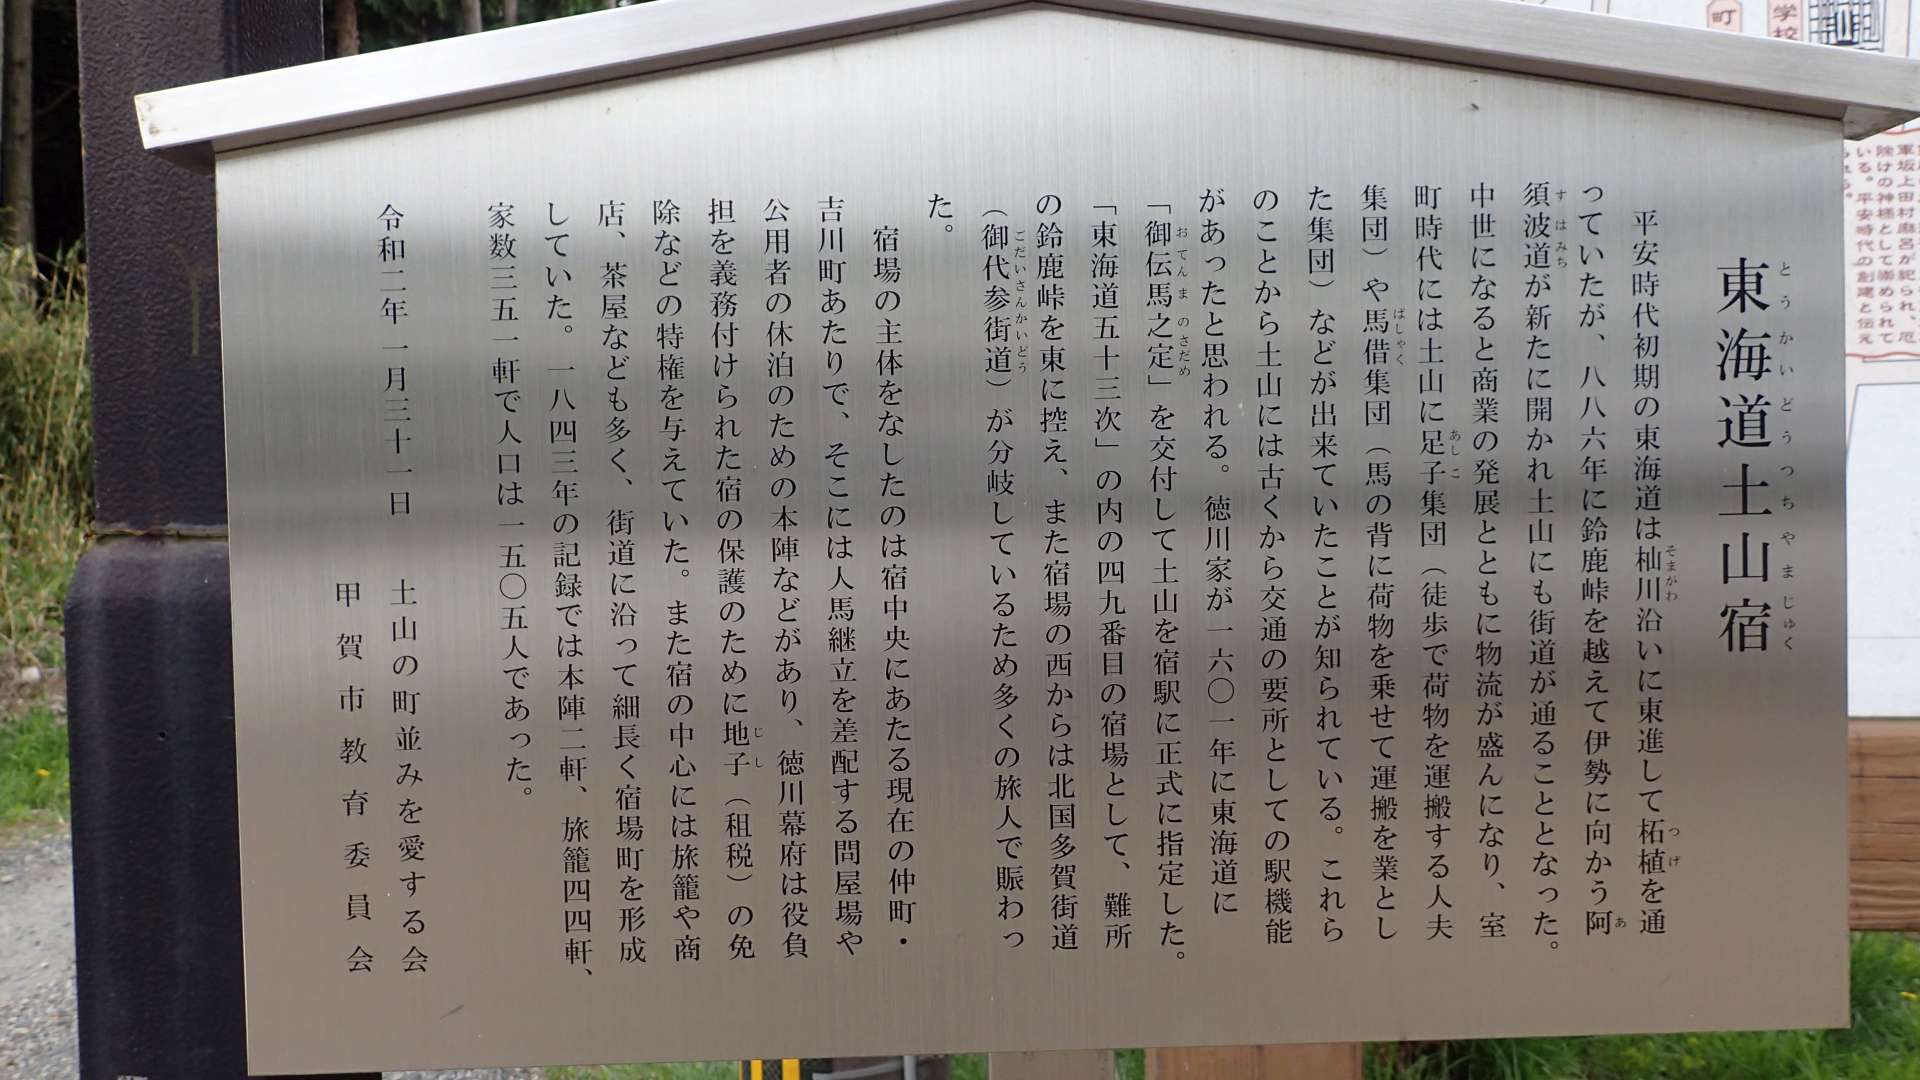 町
学校
軍坂上田村麻呂が祀られ、厄
除けの神様として崇められて
いる。平安時代の創建と伝え
られる。
東海道土山宿
とうかいどうつちやまじゅく
平安時代初期の東海道は杣川沿いに東進して柘植を通
そまがわ
つげ
っていたが、八八六年に鈴鹿峠を越えて伊勢に向かう阿
あ
須波道が新たに開かれ土山にも街道が通ることとなった。
すはみち
中世になると商業の発展とともに物流が盛んになり、室
町時代には土山に足子集団（徒歩で荷物を運搬する人夫
あしこ
集団）や馬借集団（馬の背に荷物を乗せて運搬を業とし
ばしゃく
た集団）などが出来ていたことが知られている。これら
のことから土山には古くから交通の要所としての駅機能
があったと思われる。徳川家が一六〇一年に東海道に
「御伝馬之定」を交付して土山を宿駅に正式に指定した。
おてんまのさだめ
「東海道五十三次」の内の四九番目の宿場として、難所
の鈴鹿峠を東に控え、また宿場の西からは北国多賀街道
（御代参街道）が分岐しているため多くの旅人で賑わっ
ごだいさんかいどう
た。
宿場の主体をなしたのは宿中央にあたる現在の仲町・
吉川町あたりで、そこには人馬継立を差配する問屋場や
公用者の休泊のための本陣などがあり、徳川幕府は役負
担を義務付けられた宿の保護のために地子（租税）の免
じし
除などの特権を与えていた。また宿の中心には旅籠や商
店、茶屋なども多く、街道に沿って細長く宿場町を形成
していた。一八四三年の記録では本陣二軒、旅籠四四軒、
家数三五一軒で人口は一五〇五人であった。
令和二年一月三十一日　土山の町並みを愛する会
甲賀市教育委員会